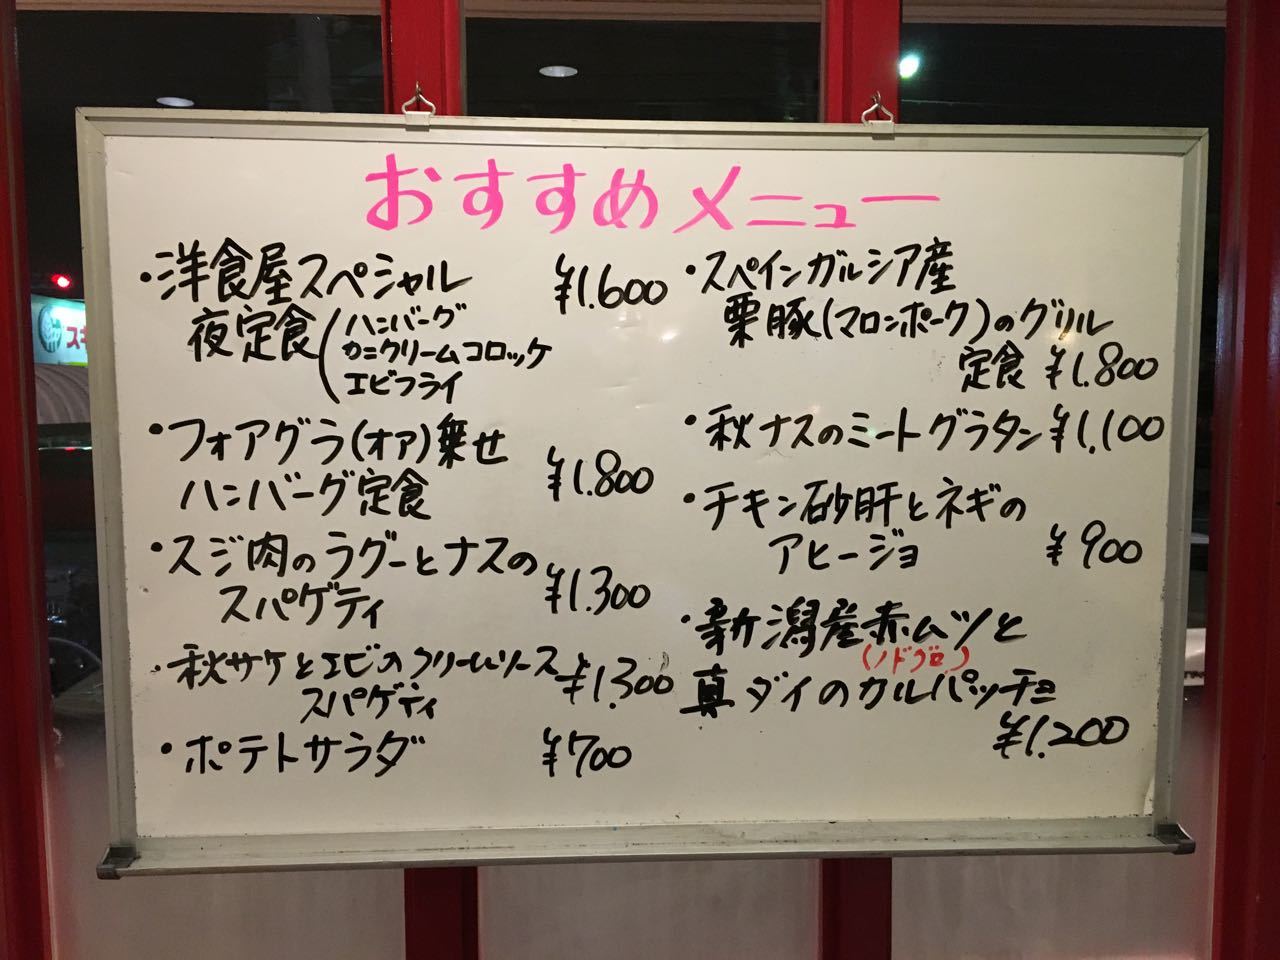 おすすめメニュー
・洋食屋スペシャル ¥1.600
夜定食(ハンバーグ
カニクリームコロッケ
エビフライ
・フォアグラ(オア)乗せ
ハンバーグ定食 ¥1.800
・スジ肉のラグーとナスの
スパゲティ ¥1.300
・秋サケとエビのクリームソース
スパゲティ ¥1.300
・ポテトサラダ ¥700
・スペインガルシア産
栗豚(マロンポーク)のグリル
定食 ¥1.800
・秋ナスのミートグラタン ¥1.100
・チキン砂肝とネギの
アヒージョ ¥900
・新潟産赤ムツと
(ノドグロ)
真ダイのカルパッチョ
¥1.200
スキ